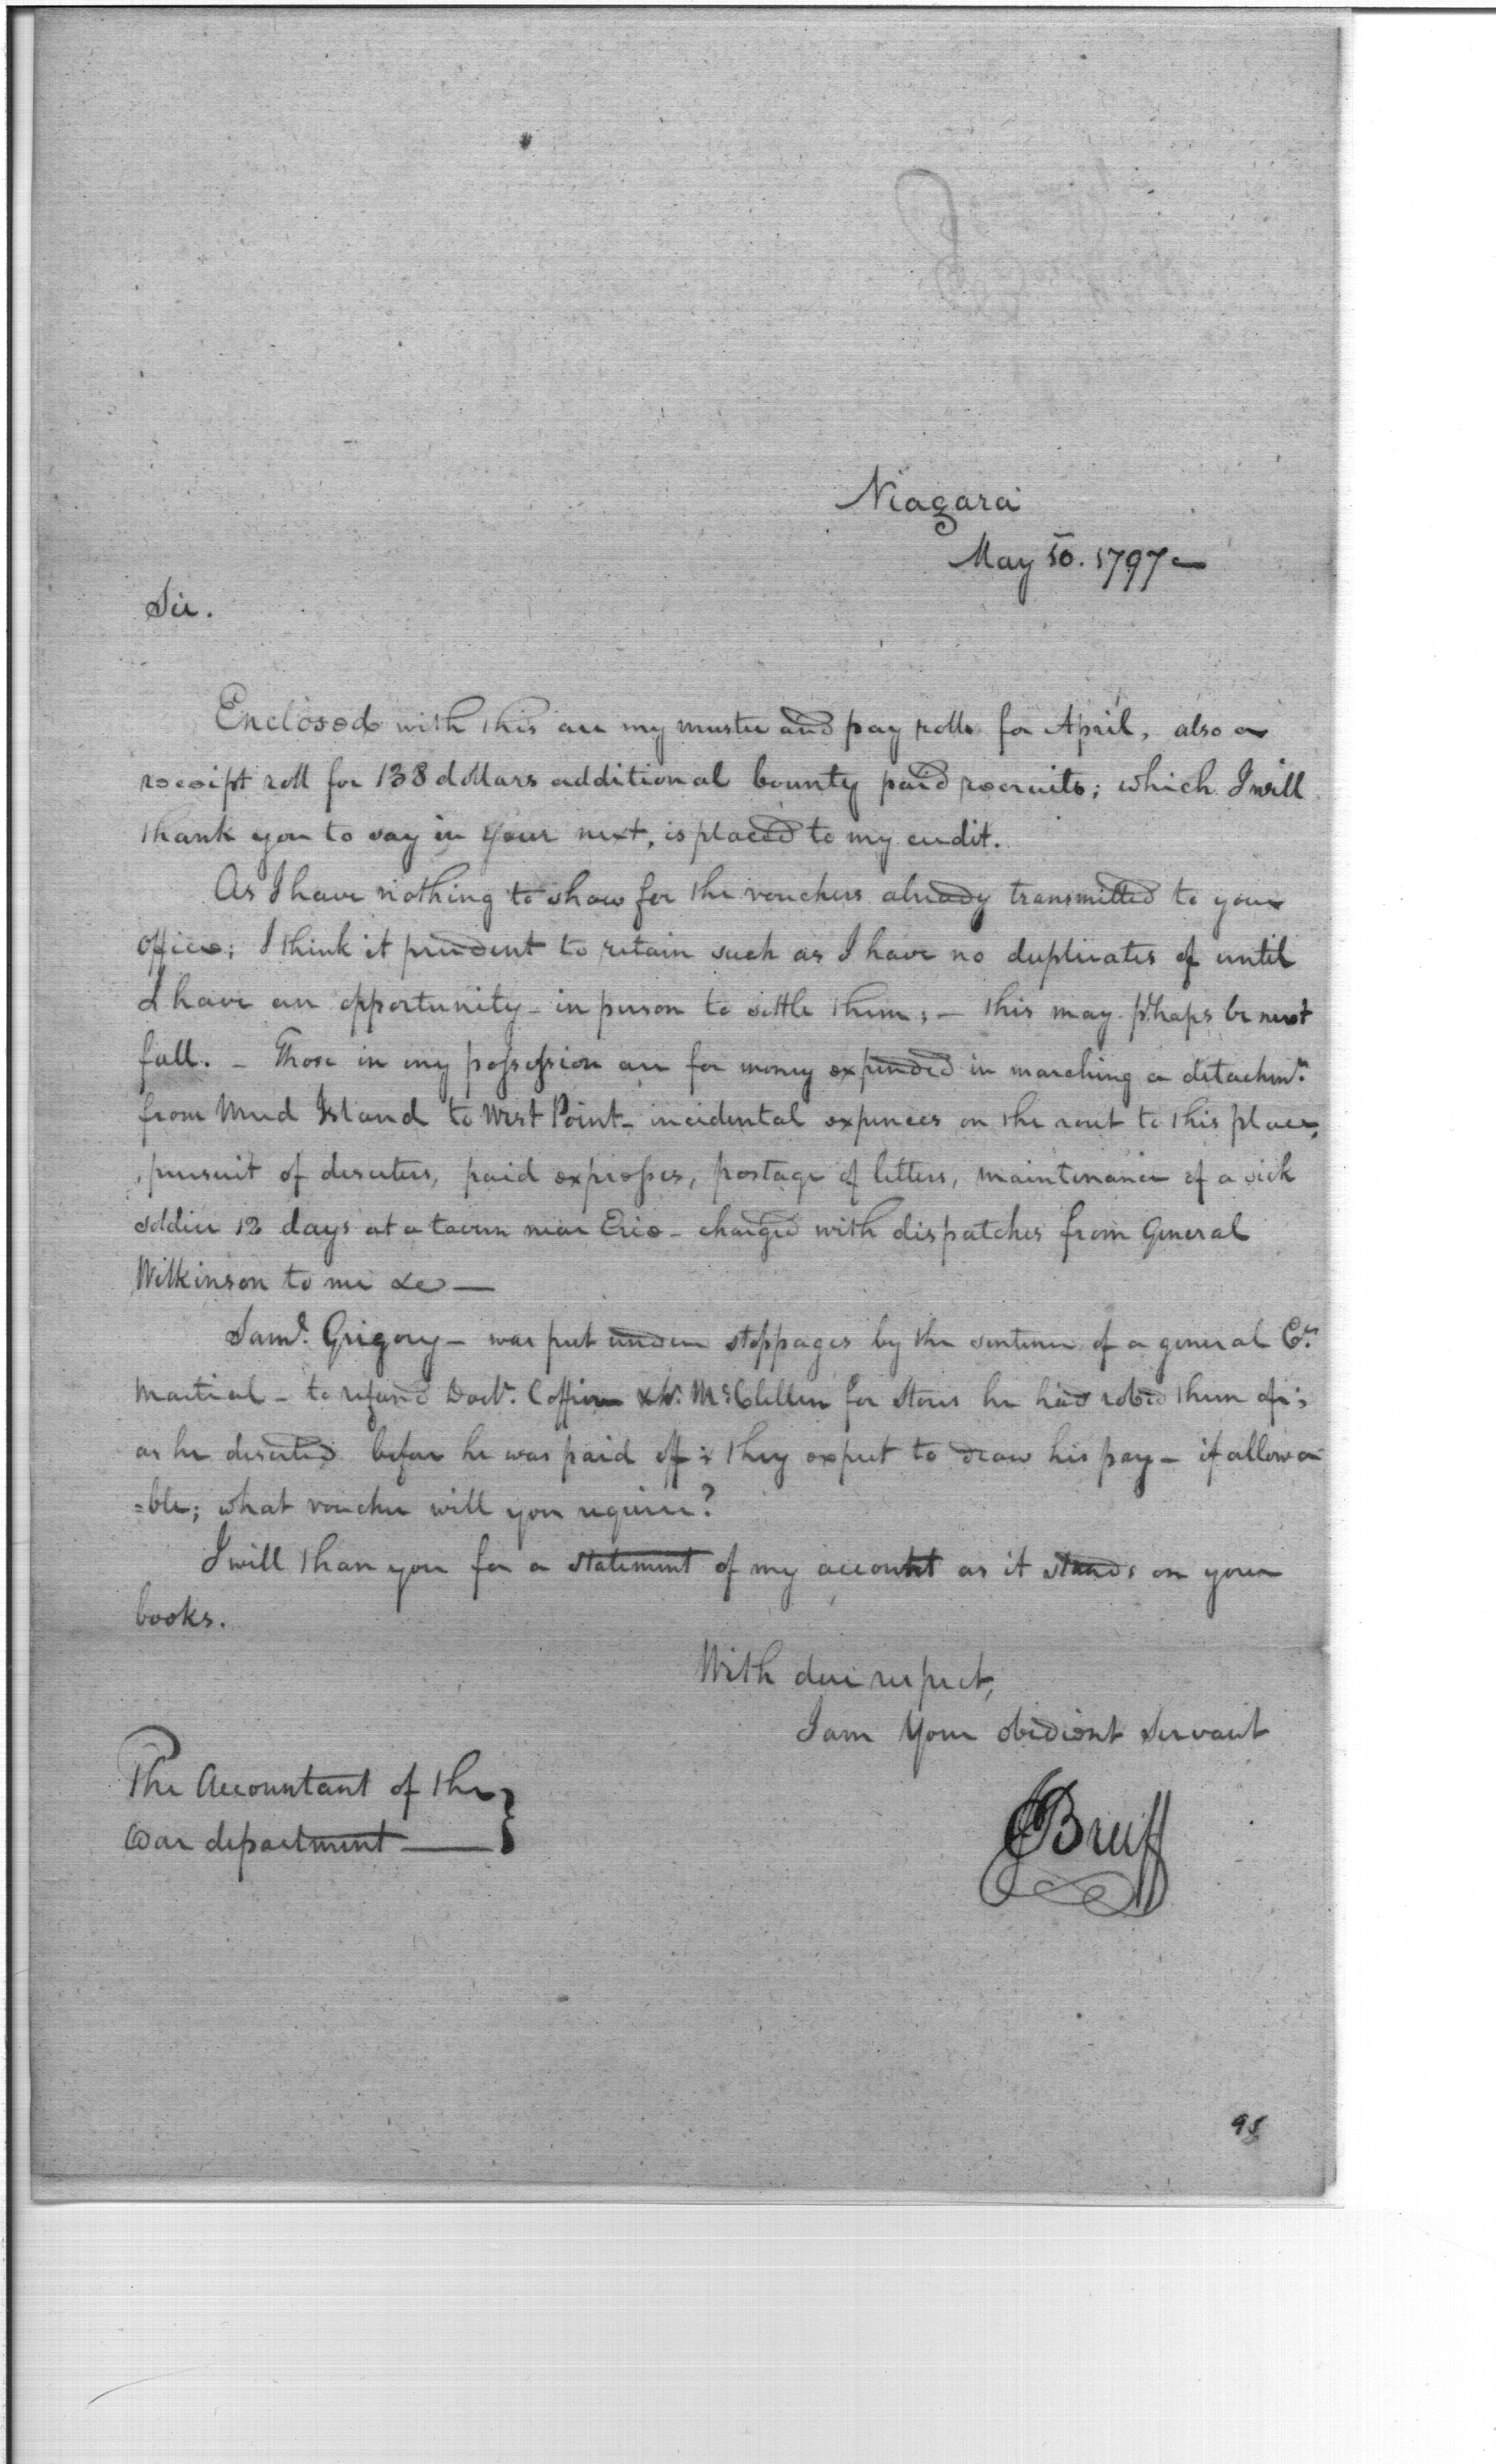 Niagara
May 10. 1797
Sir.
Enclosed with this are my muster and pay rolls for April, also a
receipt roll for 138 dollars additional bounty paid recruits; which I will
thank you to say in your next, is placed to my credit.
As I have nothing to show for the vouchers already transmitted to your
office; I think it prudent to retain such as I have no duplicates of until
I have an opportunity - in person to settle them; - this may phaps be next
fall. - Those in my possession are for money expended in marching a detachmt.
from Mud Island to West Point - incidental expences on the rout to this place,
pursuit of deserters, paid expresses, postage of letters, maintenance of a sick
soldier 12 days at a tavern near Erie - charged with dispatches from General
Wilkinson to me &c —
Saml. Grigory - was put under stoppages by the sentence of a general Ct.
Martial - to refund Doctr. Coffin & Lt. McClellen for stores he had robed them of;
as he deserted before he was paid off; they expect to draw his pay - if allowa
=ble; what voucher will you require?
I will than you for a statement of my account as it stands on your
books.
With due respect,
I am Your obedient servant
The Accountant of the }
War department — }
Bruff
95